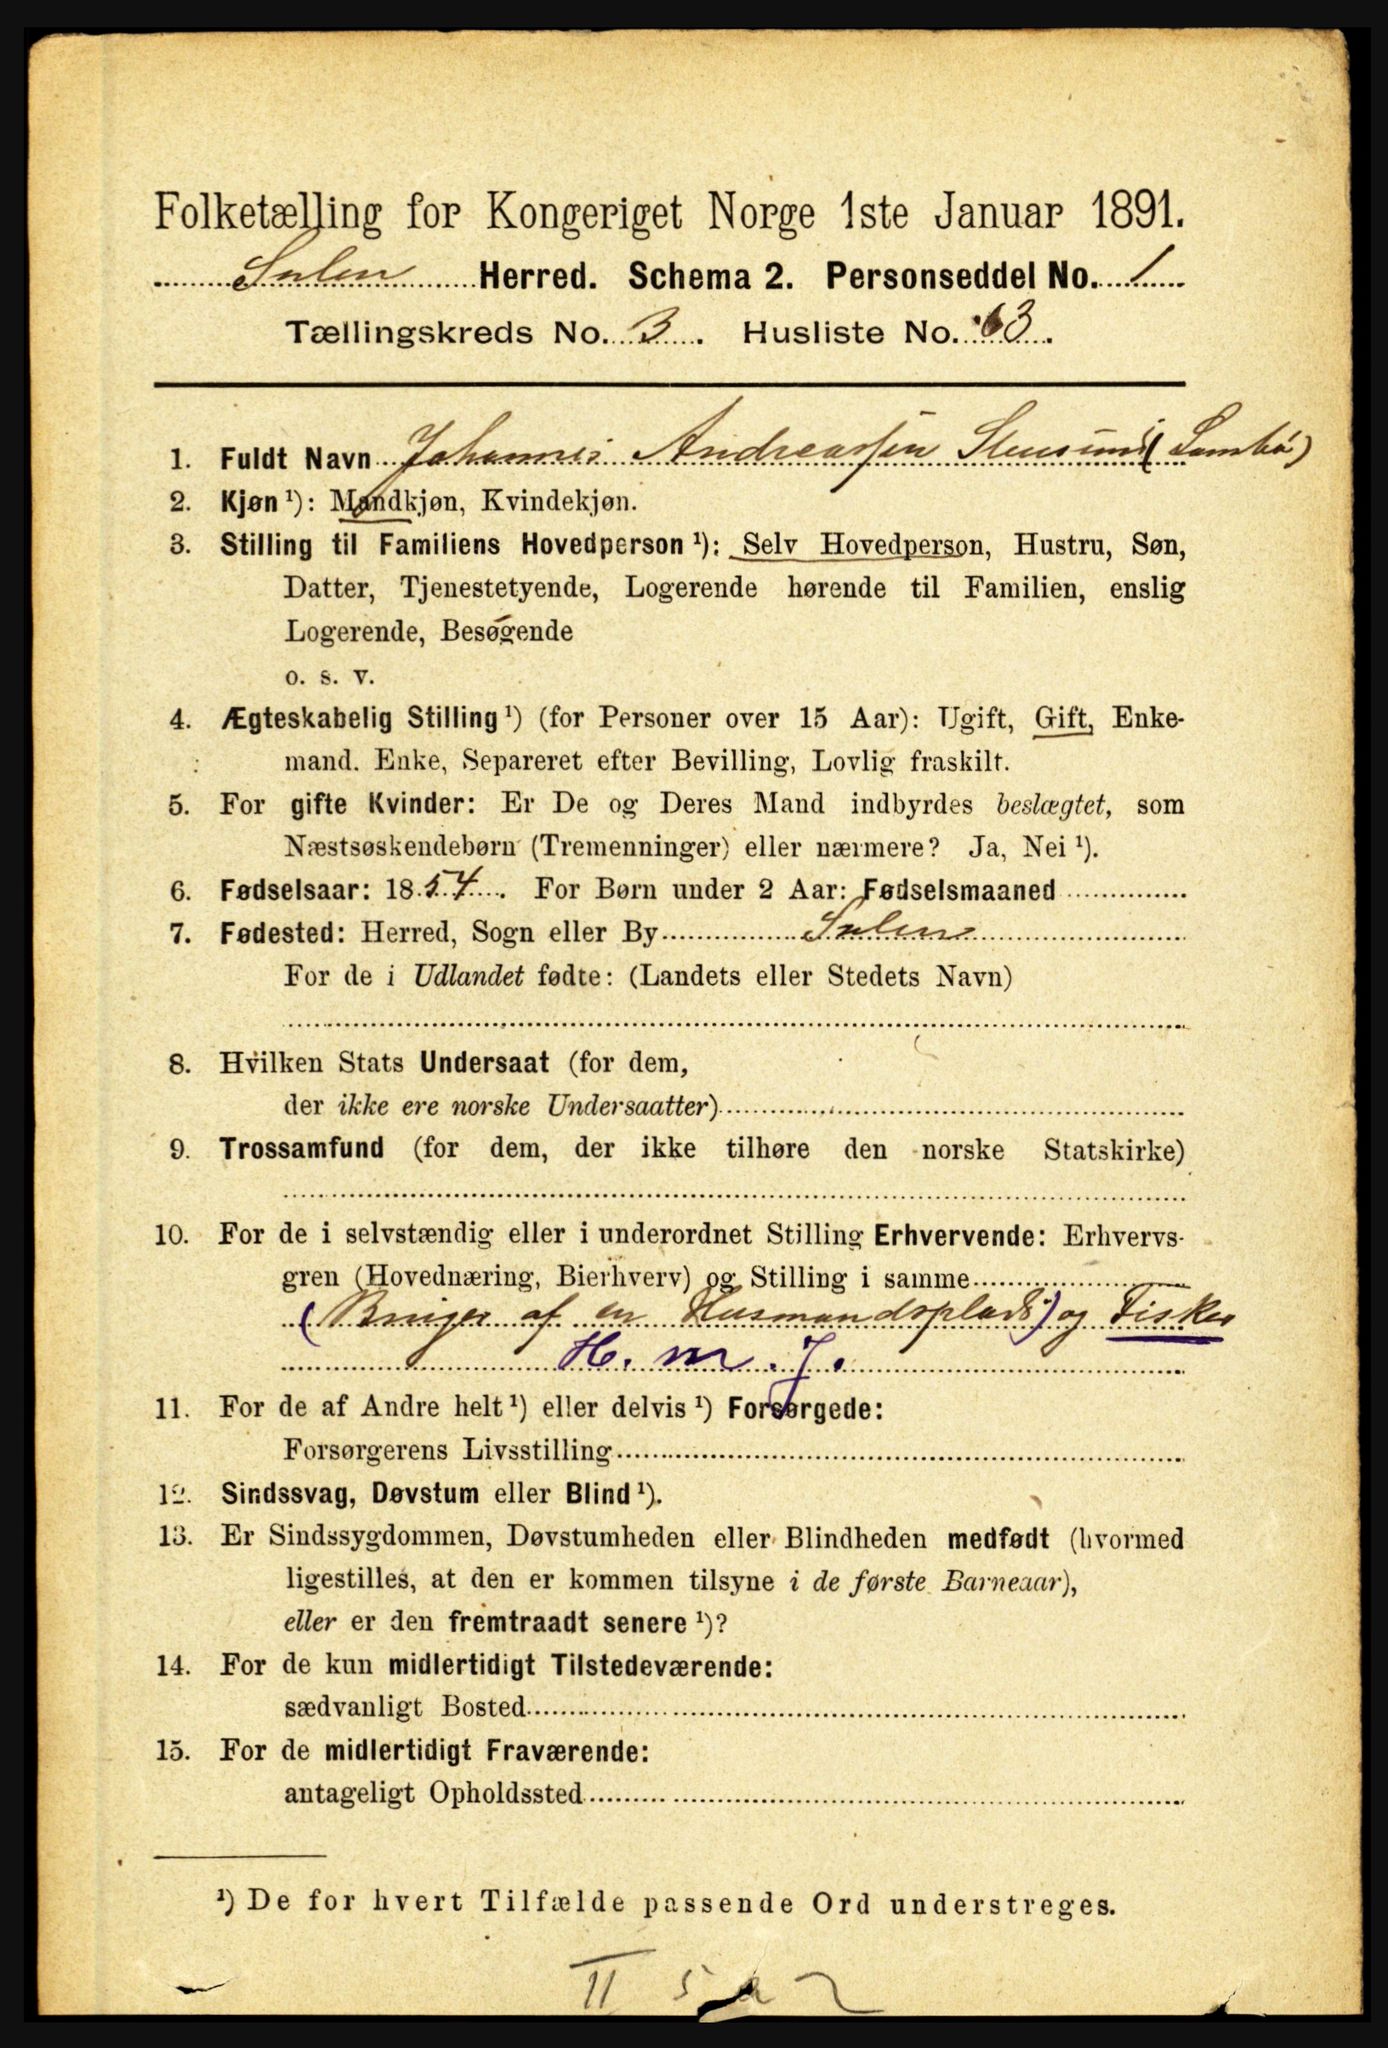 Folketælling for Kongeriget Norge 1ste Januar 1891.
Sulen Herred. Schema 2. Personseddel No. 1
Tællingskreds No. 3. Husliste No. 63.
1. Fuldt Navn Johannes Andreassen Stensund (Sambø)
2. Kjøn ¹): Mandkjøn, Kvindekjøn.
3. Stilling til Familiens Hovedperson ¹): Selv Hovedperson, Hustru, Søn,
Datter, Tjenestetyende, Logerende hørende til Familien, enslig
Logerende, Besøgende
o. s. v.
4. Ægteskabelig Stilling ¹) (for Personer over 15 Aar): Ugift, Gift, Enke-
mand. Enke, Separeret efter Bevilling, Lovlig fraskilt.
5. For gifte Kvinder: Er De og Deres Mand indbyrdes beslægtet, som
Næstsøskendebørn (Tremenninger) eller nærmere? Ja, Nei ¹).
6. Fødselsaar: 1854. For Børn under 2 Aar: Fødselsmaaned
7. Fødested: Herred, Sogn eller By Sulen
For de i Udlandet fødte: (Landets eller Stedets Navn)
8. Hvilken Stats Undersaat (for dem,
der ikke ere norske Undersaatter)
9. Trossamfund (for dem, der ikke tilhøre den norske Statskirke)
10. For de i selvstændig eller i underordnet Stilling Erhvervende: Erhvervs-
gren (Hovednæring, Bierhverv) og Stilling i samme
(Bruger af en Husmandsplads) og Fisker
H. m. J.
11. For de af Andre helt ¹) eller delvis ¹) Forsørgede:
Forsørgerens Livsstilling
12. Sindssvag, Døvstum eller Blind ¹).
13. Er Sindssygdommen, Døvstumheden eller Blindheden medfødt (hvormed
ligestilles, at den er kommen tilsyne i de første Barneaar),
eller er den fremtraadt senere ¹)?
14. For de kun midlertidigt Tilstedeværende:
sædvanligt Bosted
15. For de midlertidigt Fraværende:
antageligt Opholdssted
¹) De for hvert Tilfælde passende Ord understreges.
II 5 a 2